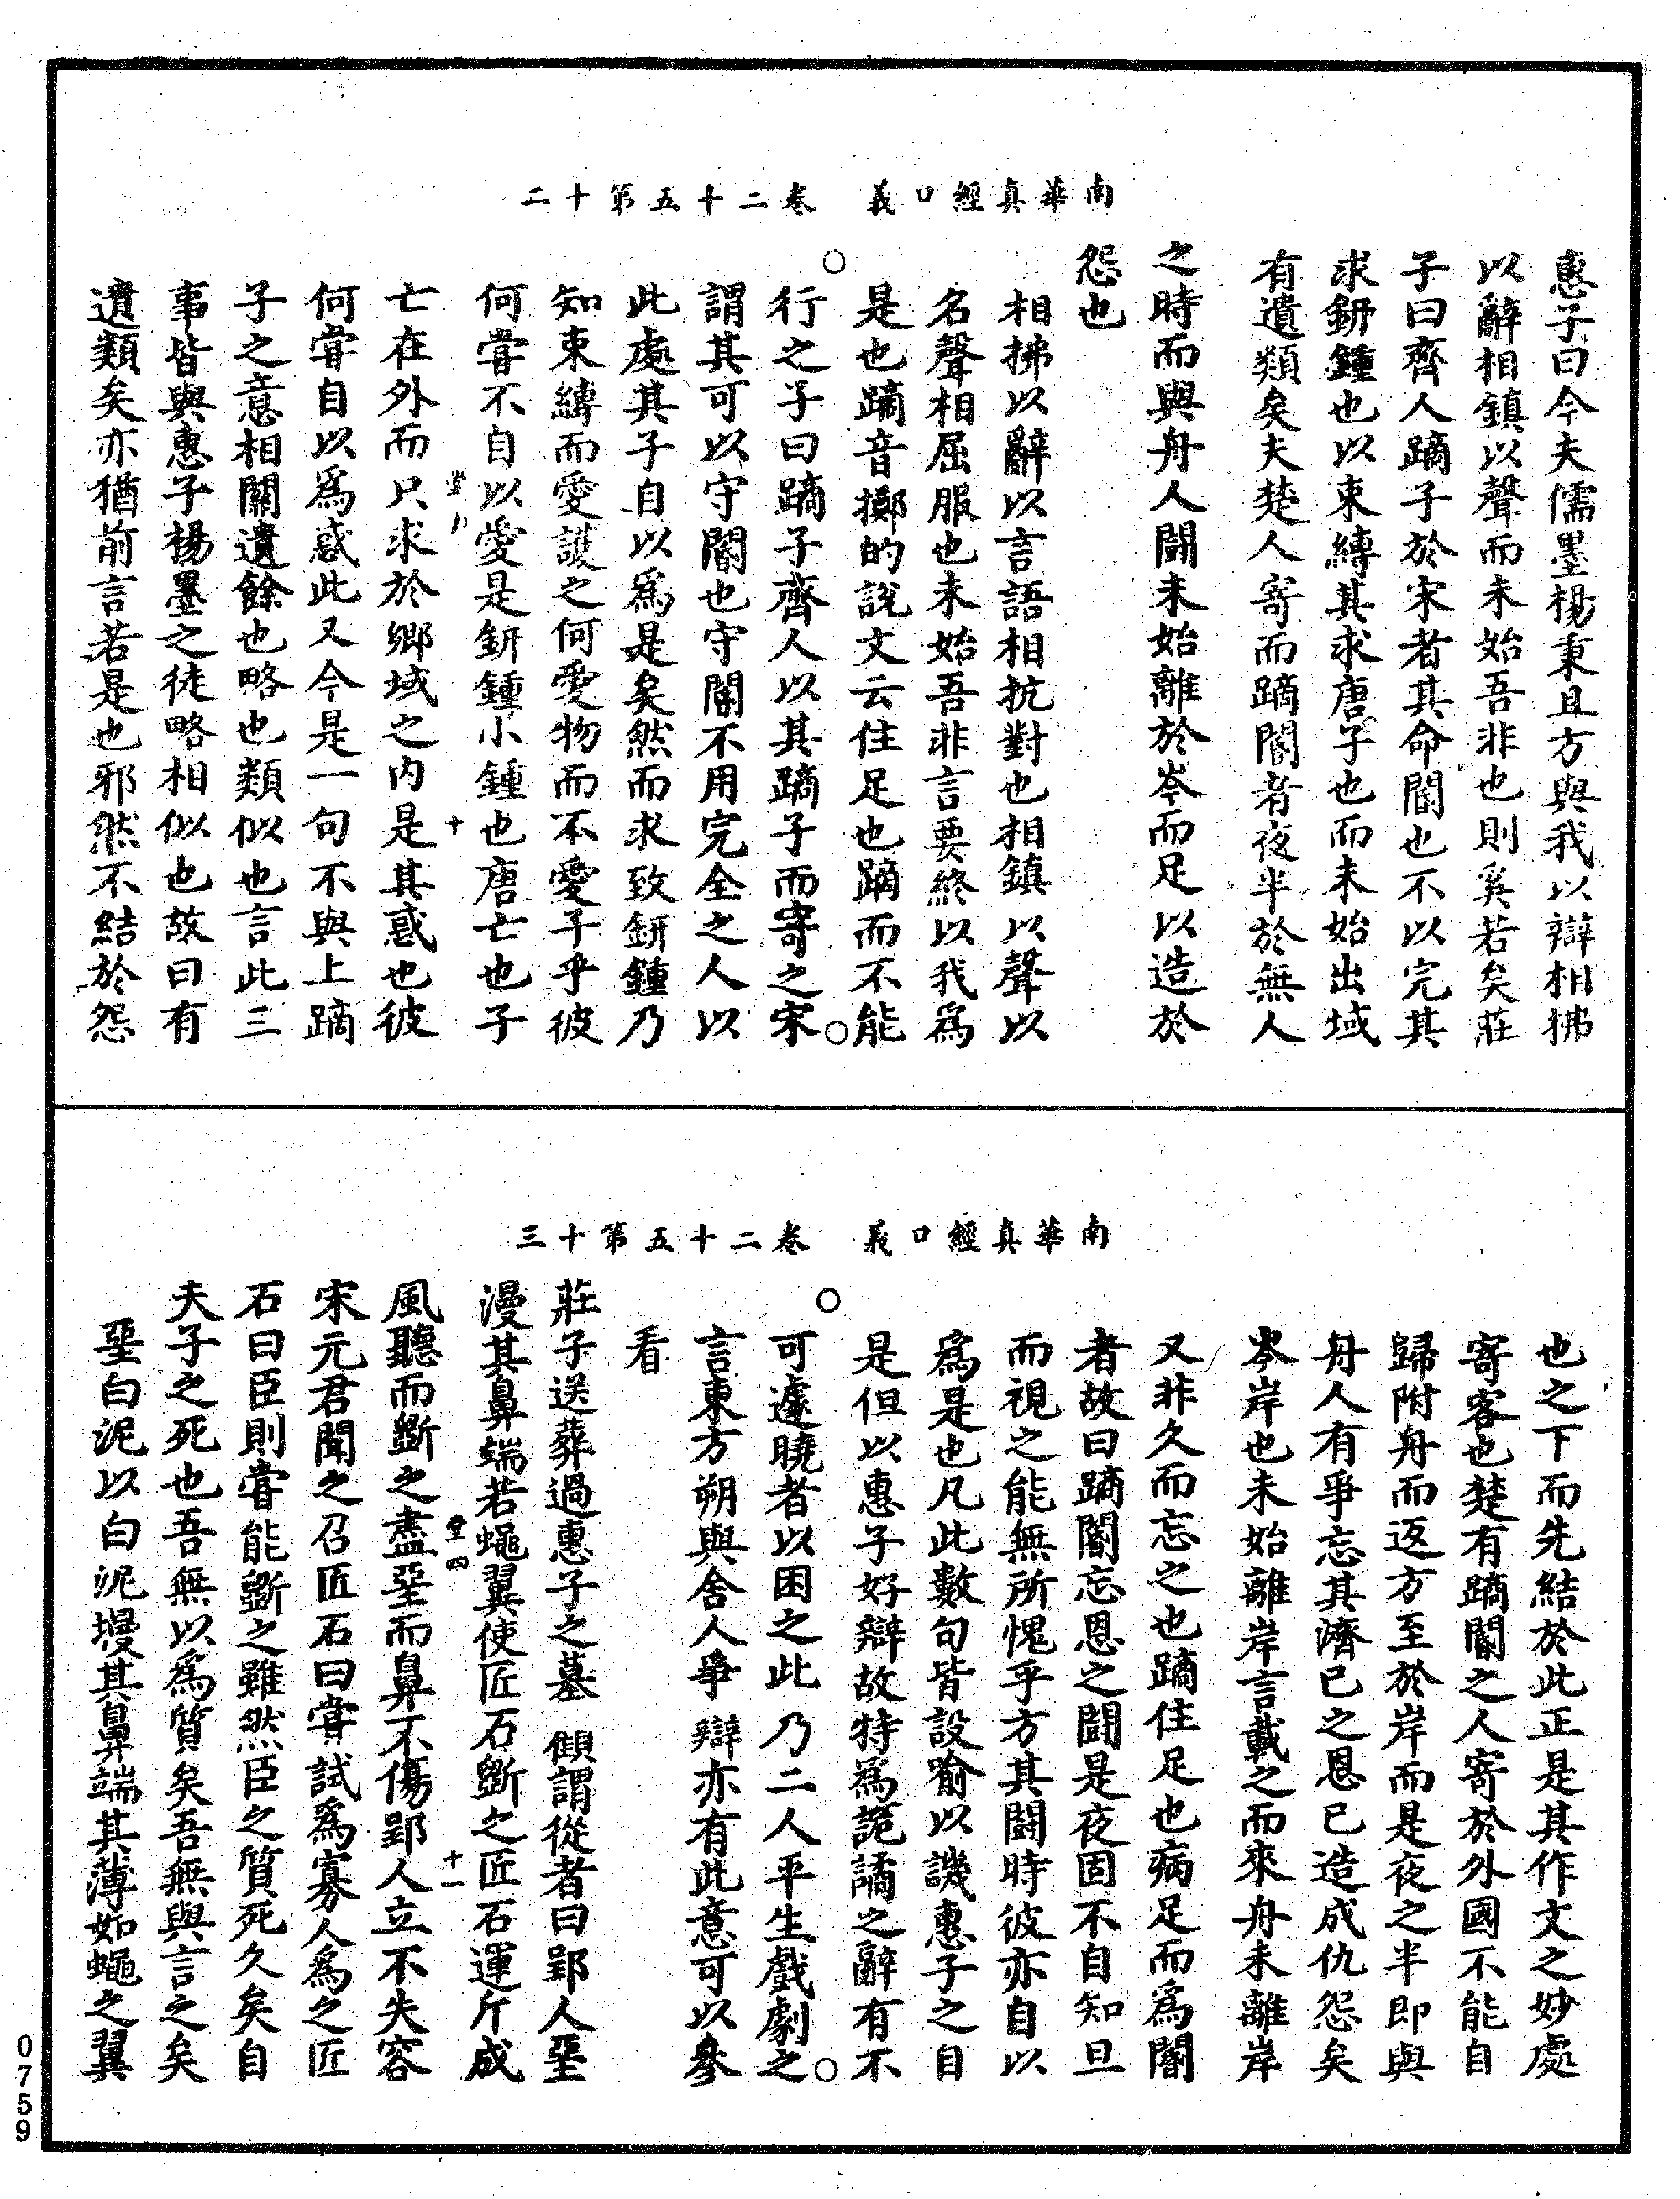 南華真經口義 卷二十五第十二
惠子曰今夫儒墨楊秉且方與我以辯相拂
以辭相鎮以聲而未始吾非也則奚若矣莊
子曰齊人蹢子於宋者其命閽也不以完其
求鈃鍾也以束縛其求唐子也而未始出域
有遺類矣夫楚人寄而蹢閽者夜半於無人
之時而與舟人鬪未始離於岑而足以造於
怨也
相拂以辭以言語相抗對也相鎮以聲以
名聲相屈服也未始吾非言要終以我為
是也蹢音擲的說文云住足也蹢而不能
行之子曰蹢子齊人以其蹢子而寄之宋
謂其可以守閽也守閽不用完全之人以
此處其子自以為是矣然而求致鈃鍾乃
知束縛而愛護之何愛物而不愛子乎彼
何嘗不自以愛是鈃鍾小鍾也唐亡也子
亡在外而只求於鄉域之內是其惑也彼
何嘗自以為惑此又今是一句不與上蹢
子之意相關遺餘也略也類似也言此三
事皆與惠子楊墨之徒略相似也故曰有
遺類矣亦猶前言若是也邪然不結於怨
十
南華真經口義 卷二十五第十三
也之下而先結於此正是其作文之妙處
寄客也楚有蹢閽之人寄於外國不能自
歸附舟而返方至於岸而是夜之半即與
舟人有爭忘其濟已之恩已造成仇怨矣
岑岸也未始離岸言載之而來舟未離岸
又非久而忘之也蹢住足也病足而為閽
者故曰蹢閽忘恩之鬪是夜固不自知旦
而視之能無所愧乎方其鬪時彼亦自以
為是也凡此數句皆設喻以譏惠子之自
是但以惠子好辯故特為詭譎之辭有不
可遽曉者以困之此乃二人平生戲劇之
言東方朔與舍人爭辯亦有此意可以參
看
莊子送葬過惠子之墓顧謂從者曰郢人堊
漫其鼻端若蠅翼使匠石斲之匠石運斤成
風聽而斲之盡堊而鼻不傷郢人立不失容
宋元君聞之召匠石曰嘗試為寡人為之匠
石曰臣則嘗能斲之雖然臣之質死久矣自
夫子之死也吾無以為質矣吾無與言之矣
堊白泥以白泥墁其鼻端其薄如蠅之翼
堂四
十一
0759